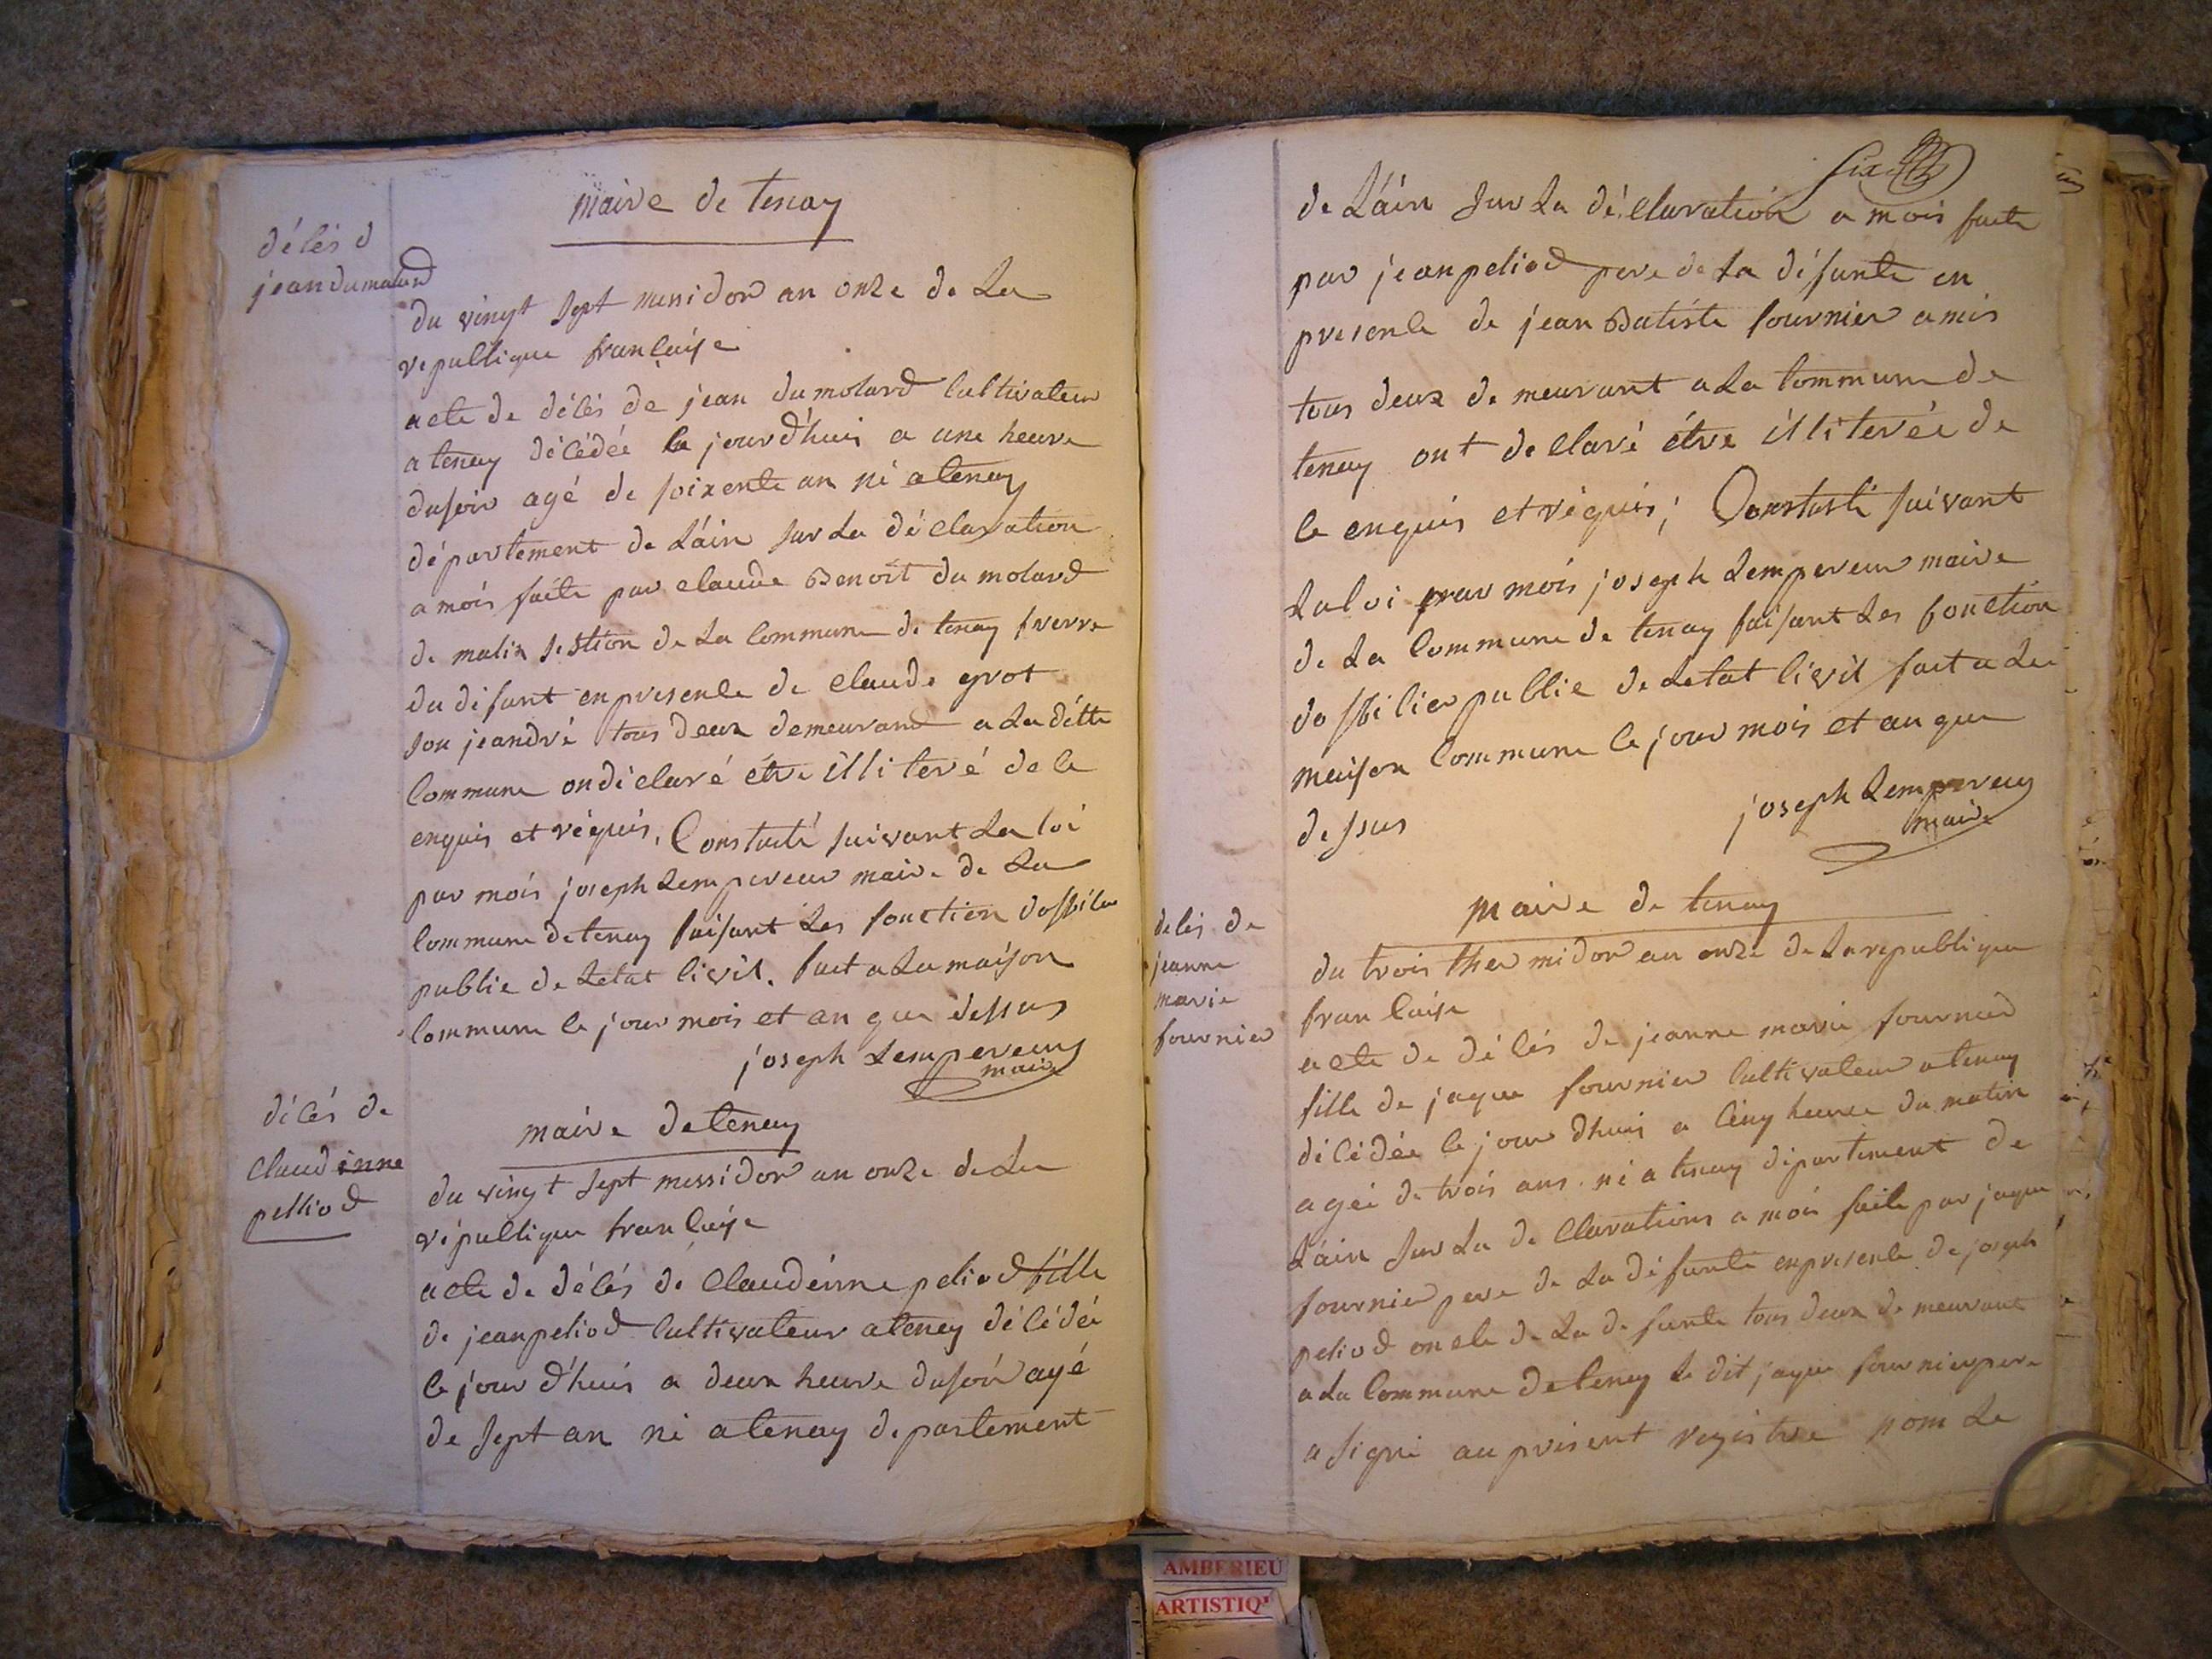 maire de tenay
décés d
jean dumolard
du vingt sept messidor an onze de La
republique française
acte de décés de jean dumolard cultivateur
a tenay décédée le jourd'huis a une heure
dusoir agé de soixente an né a tenay
département de L'áin sur La déclaration
a mois faite par claude Benoit du molard
de malix session de La commune de tenay frerre
du defunt enpresence de claude grot
son jeandré tous deux demeurand a La ditte
commune ondéclaré étre illiteré de ce
enquis et réquis, Constaté suivant La loi
par mois joseph Lempereur maire de La
commune detenay faisant Les fonction dofficier
public de Letat civil. fait a La maison
commune le jour mois et an que dessus
joseph Lempereur
maire
décés de
claudinne
pelliod
maire detenay
du vingt sept messidor an onze de La
république francaise
acte de décés de claudinne peliod fille
de jeanpeliod cultivateur atenay décédée
le jour d'huis a deux heure dusoir agé
de sept an né atenay departement
six
de L'áin sur La déclaration a mois faite
par jeanpeliod pere de La défunte en
presence de jean Batiste fournier amis
tous deux de meurant a La commune de
tenay ont declaré étre illiterée de
ce enquis et réquis; Constasté suivant
La loi par mois joseph Lempereur maire
de La commune de tenay faisant Les fonction
dofficier public de Letat civil fait a La
maison commune le jour mois et an que
dessus
joseph Lempereur
maire
maire de tenay
deces de
jeanne
marie
fournier
du trois thermidor an onze de La republique
francaise
acte de décés de jeanne marie fournied
fille de jaque fournier cultivateur a tenay
décédée le jour dhuis a cinq heure du matin
agée de trois ans né a tenay département de
L'áin sur La declarations a mois faite par jaque
fournier pere de La défunte enpresence de joseph
peliod oncle de La defunte tous deux de meurant
a La commune detenay Le dit jaque fournier pere
a signé au present registre nom Le